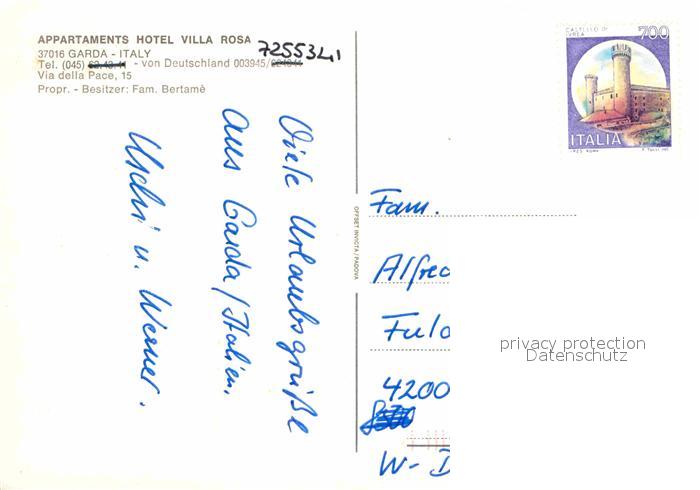 APPARTAMENTS HOTEL VILLA ROSA
37016 GARDA - ITALY
7255341
Tel. (045) 62.43.41 - von Deutschland 003945/624341
Via della Pace, 15
Propr. - Besitzer: Fam. Bertamè
Viele Urlaubsgrüße
aus Garda/Italien.
Uschi u. Werner.
OFFSET INVICTA/PADOVA
CASTELLO DI IVREA
700
ITALIA
Fam.
Alfred
Fulo
4200
W-D
privacy protection
Datenschutz